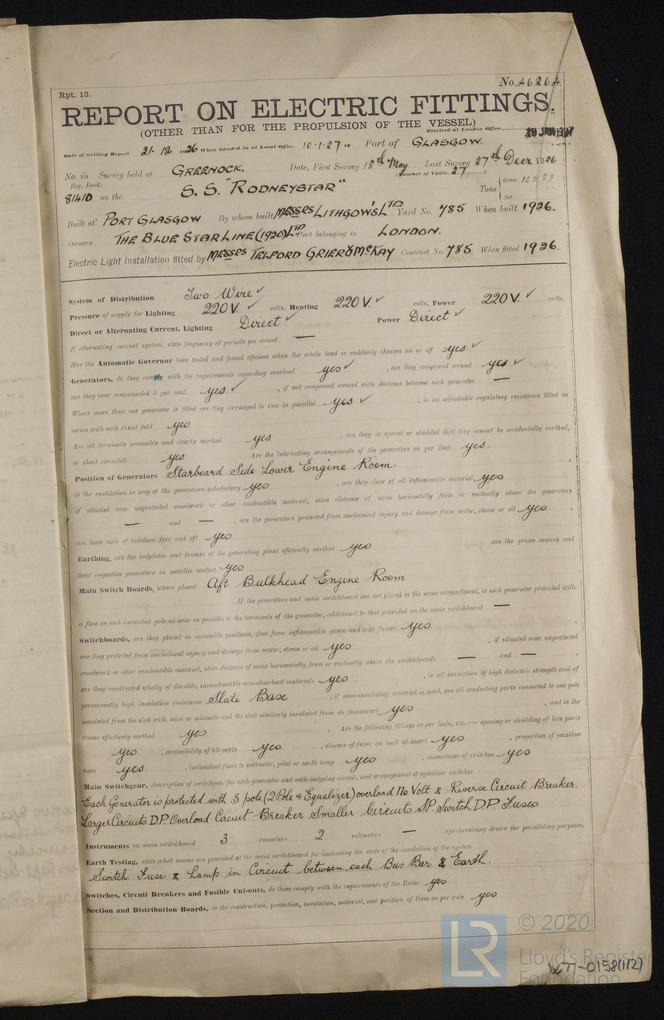 Rpt. 13.
No. 46264.
REPORT ON ELECTRIC FITTINGS.
(OTHER THAN FOR THE PROPULSION OF THE VESSEL)
Received at London Office
Date of writing Report 21.12.1926 When handed in at Local Office 10-1-27 Port of GLASGOW.
No. in Survey held at GREENOCK. Date, First Survey 18th May Last Survey 27th Decr 1926
Reg. Book. (Number of Visits 27)
81410 on the S.S. "RODNEYSTAR" Tons Gross Net
Built at PORT GLASGOW By whom built MESSRS LITHGOW'S LTD Yard No. 785 When built 1926.
Owners THE BLUE STAR LINE (1920) LTD Port belonging to LONDON.
Electric Light Installation fitted by MESSRS TELFORD GRIER & McKAY Contract No. 785 When fitted 1926.
System of Distribution Two Wire ✓
Pressure of supply for Lighting 220V. ✓ volts, Heating 220V. ✓ volts, Power 220V. ✓ volts.
Direct or Alternating Current, Lighting Direct ✓ Power Direct ✓
If alternating current system, state frequency of periods per second —
Has the Automatic Governor been tested and found efficient when the whole load is suddenly thrown on or off yes ✓
Generators, do they comply with the requirements regarding overload yes ✓, are they compound wound yes ✓
are they over compounded 5 per cent. yes ✓, if not compound wound state distance between each generator —
Where more than one generator is fitted are they arranged to run in parallel yes ✓, is an adjustable regulating resistance fitted in
series with each shunt field yes
Are all terminals accessible and clearly marked yes, are they so spaced or shielded that they cannot be accidentally earthed,
or short circuited yes Are the lubricating arrangements of the generators as per Rule yes.
Position of Generators Starboard Side Lower Engine Room.
is the ventilation in way of the generators satisfactory yes, are they clear of all inflammable material yes
if situated near unprotected woodwork or other combustible material, state distance of same horizontally from or vertically above the generators
— and —, are the generators protected from mechanical injury and damage from water, steam or oil yes,
are their axis of rotation fore and aft yes
Earthing, are the bedplates and frames of the generating plant efficiently earthed yes are the prime movers and
their respective generators in metallic contact yes
Main Switch Boards, where placed Aft Bulkhead Engine Room
If the generators and main switchboard are not placed in the same compartment, is each generator provided with
a fuse on each insulated pole as near as possible to the terminals of the generator, additional to that provided on the main switchboard —
Switchboards, are they placed in accessible positions, free from inflammable gases and acid fumes yes
are they protected from mechanical injury and damage from water, steam or oil yes, if situated near unprotected
woodwork or other combustible material, state distance of same horizontally from or vertically above the switchboards — and —
are they constructed wholly of durable, incombustible non-absorbent materials yes, is all insulation of high dielectric strength and of
permanently high insulation resistance Slate Base, if semi-insulating material is used, are all conducting parts connected to one pole
insulated from the slab with mica or micanite and the slab similarly insulated from its framework yes, and is the
frame effectively earthed yes. Are the following fittings as per Rule, viz.:— spacing or shielding of live parts
yes, accessibility of all parts yes, absence of fuses on back of board yes, proportion of omnibus
bars yes, individual fuses to voltmeter, pilot or earth lamp yes, connections of switches yes
Main Switchgear, description of switchgear for each generator and each outgoing circuit, and arrangement of equalizer switches
Each Generator is protected with 3 pole (2 Pole & Equalizer) overload No Volt & Reverse Circuit Breaker.
Larger Circuits D.P. Overload Circuit-Breaker Smaller Circuits DP. Switch D.P. Fuses
Instruments on main switchboard 3 ammeters 2 voltmeters — synchronising device for paralleling purposes.
Earth Testing, state what means are provided at the main switchboard for indicating the state of the insulation of the system
Switch Fuse & Lamp in Circuit between each Bus Bar & Earth.
Switches, Circuit Breakers and Fusible Cut-outs, do these comply with the requirements of the Rules yes
Section and Distribution Boards, is the construction, protection, insulation, material, and position of these as per rule yes
© 2020
LR
Lloyd's Register
Foundation
W77-0158(1/2)